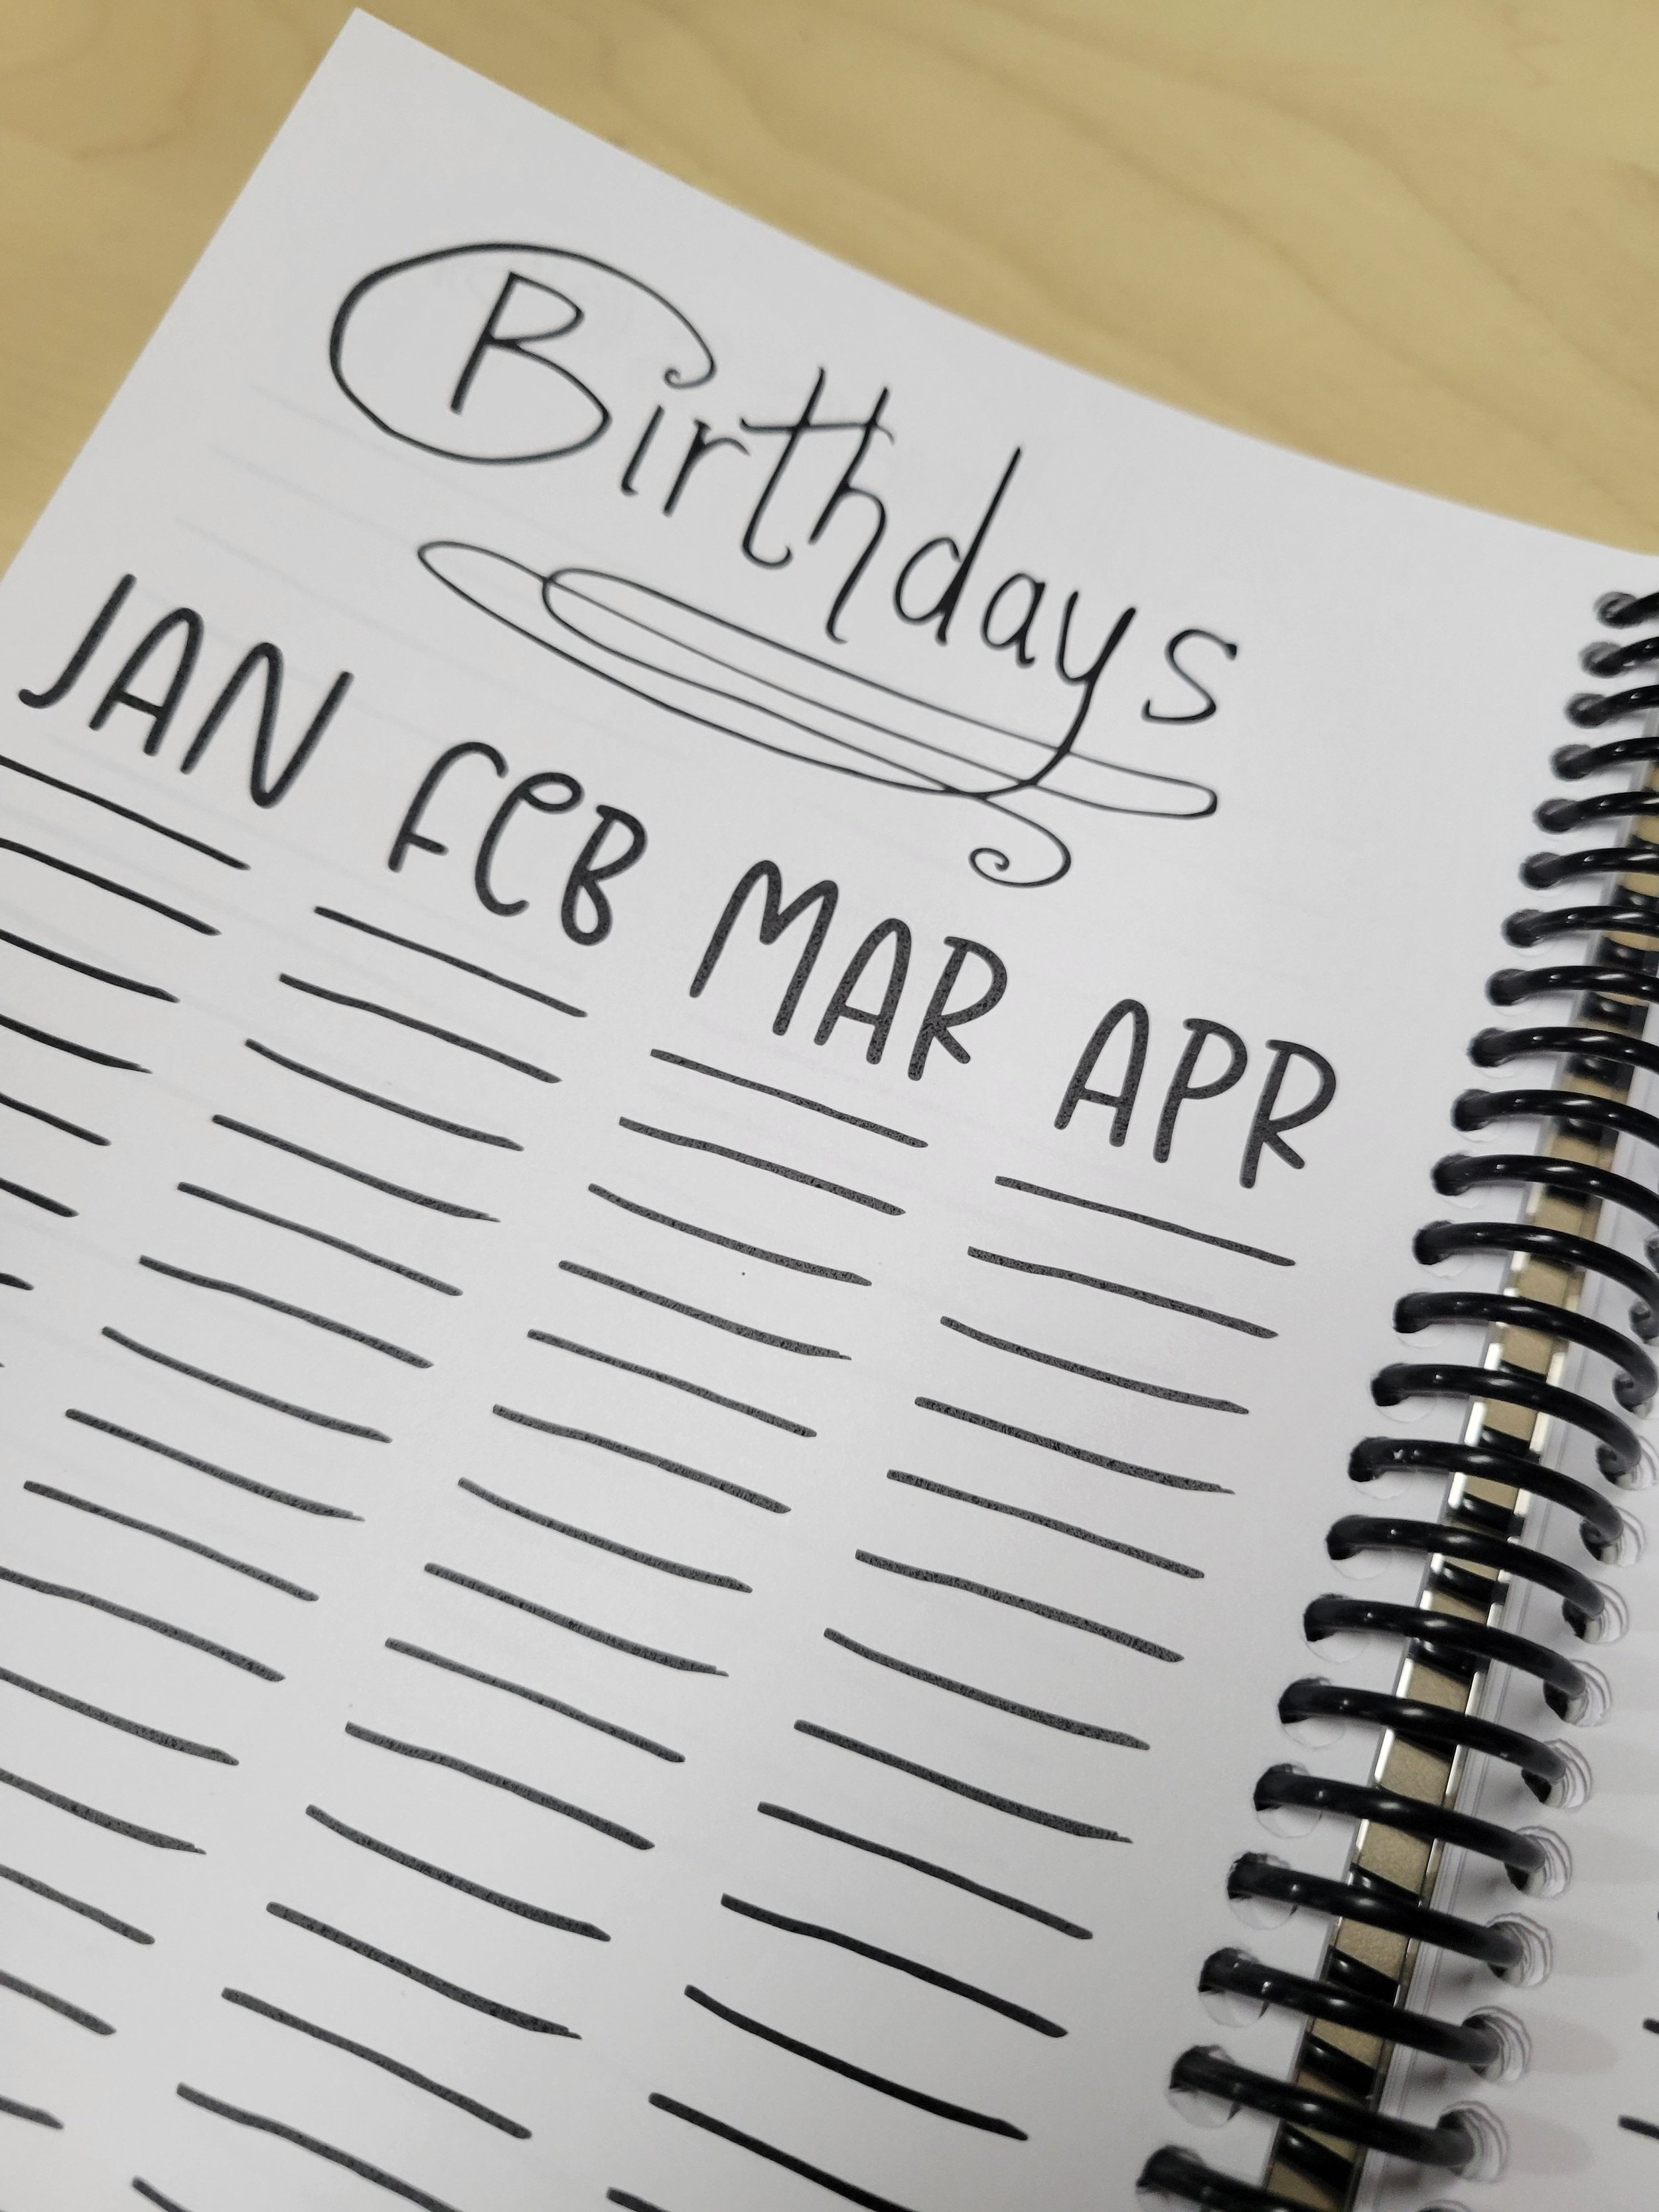 Birthdays
JAN FEB MAR APR